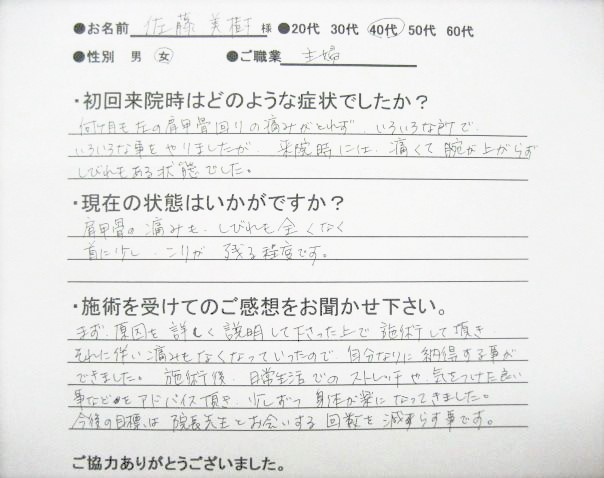 ●お名前 佐藤 美樹 様 ●20代 30代 40代 50代 60代
●性別 男 女 ●ご職業 主婦
・初回来院時はどのような症状でしたか？
何ヶ月も左の肩甲骨回りの痛みがとれず、いろいろな所で
いろいろな事をやりましたが、来院時には、痛くて腕が上がらず
しびれもある状態でした。
・現在の状態はいかがですか？
肩甲骨の痛みも、しびれも全くなく
首に少し、こりが残る程度です。
・施術を受けてのご感想をお聞かせ下さい。
まず、原因を詳しく説明して下さった上で施術して頂き
それに伴い痛みもなくなっていったので自分なりに納得する事が
できました。施術後、日常生活でのストレッチや、気をつけた良い
事などをアドバイス頂き、少しずつ身体が楽になってきました。
今後の目標は院長先生とお会いする回数を減すらす事です。
ご協力ありがとうございました。